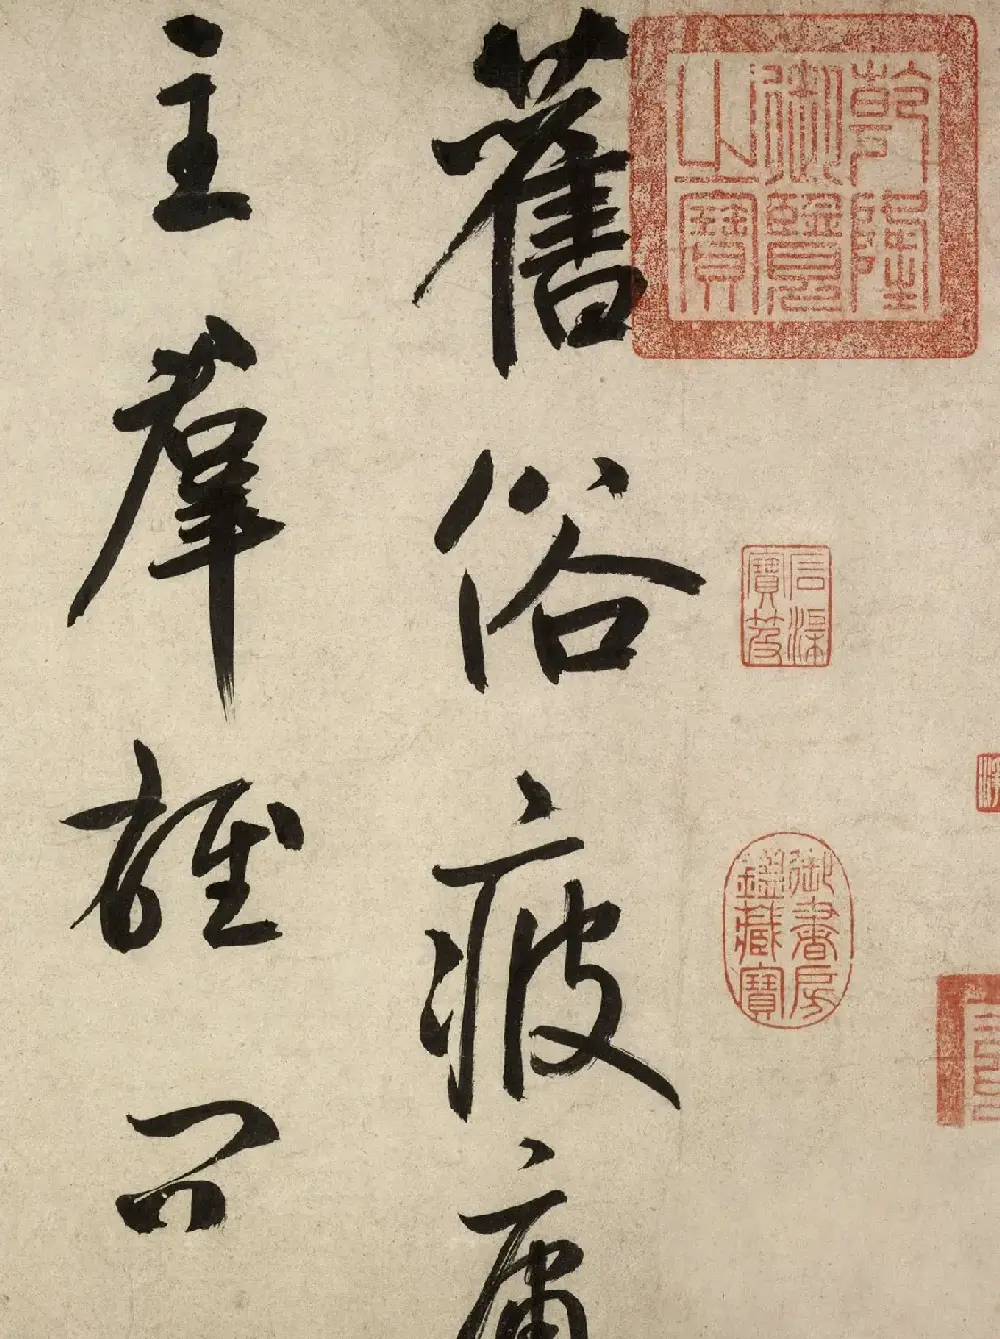 乾隆
御覽
之寶
石渠
寶笈
御書房
鑑藏寶
舊俗疲庸
主羣雄問